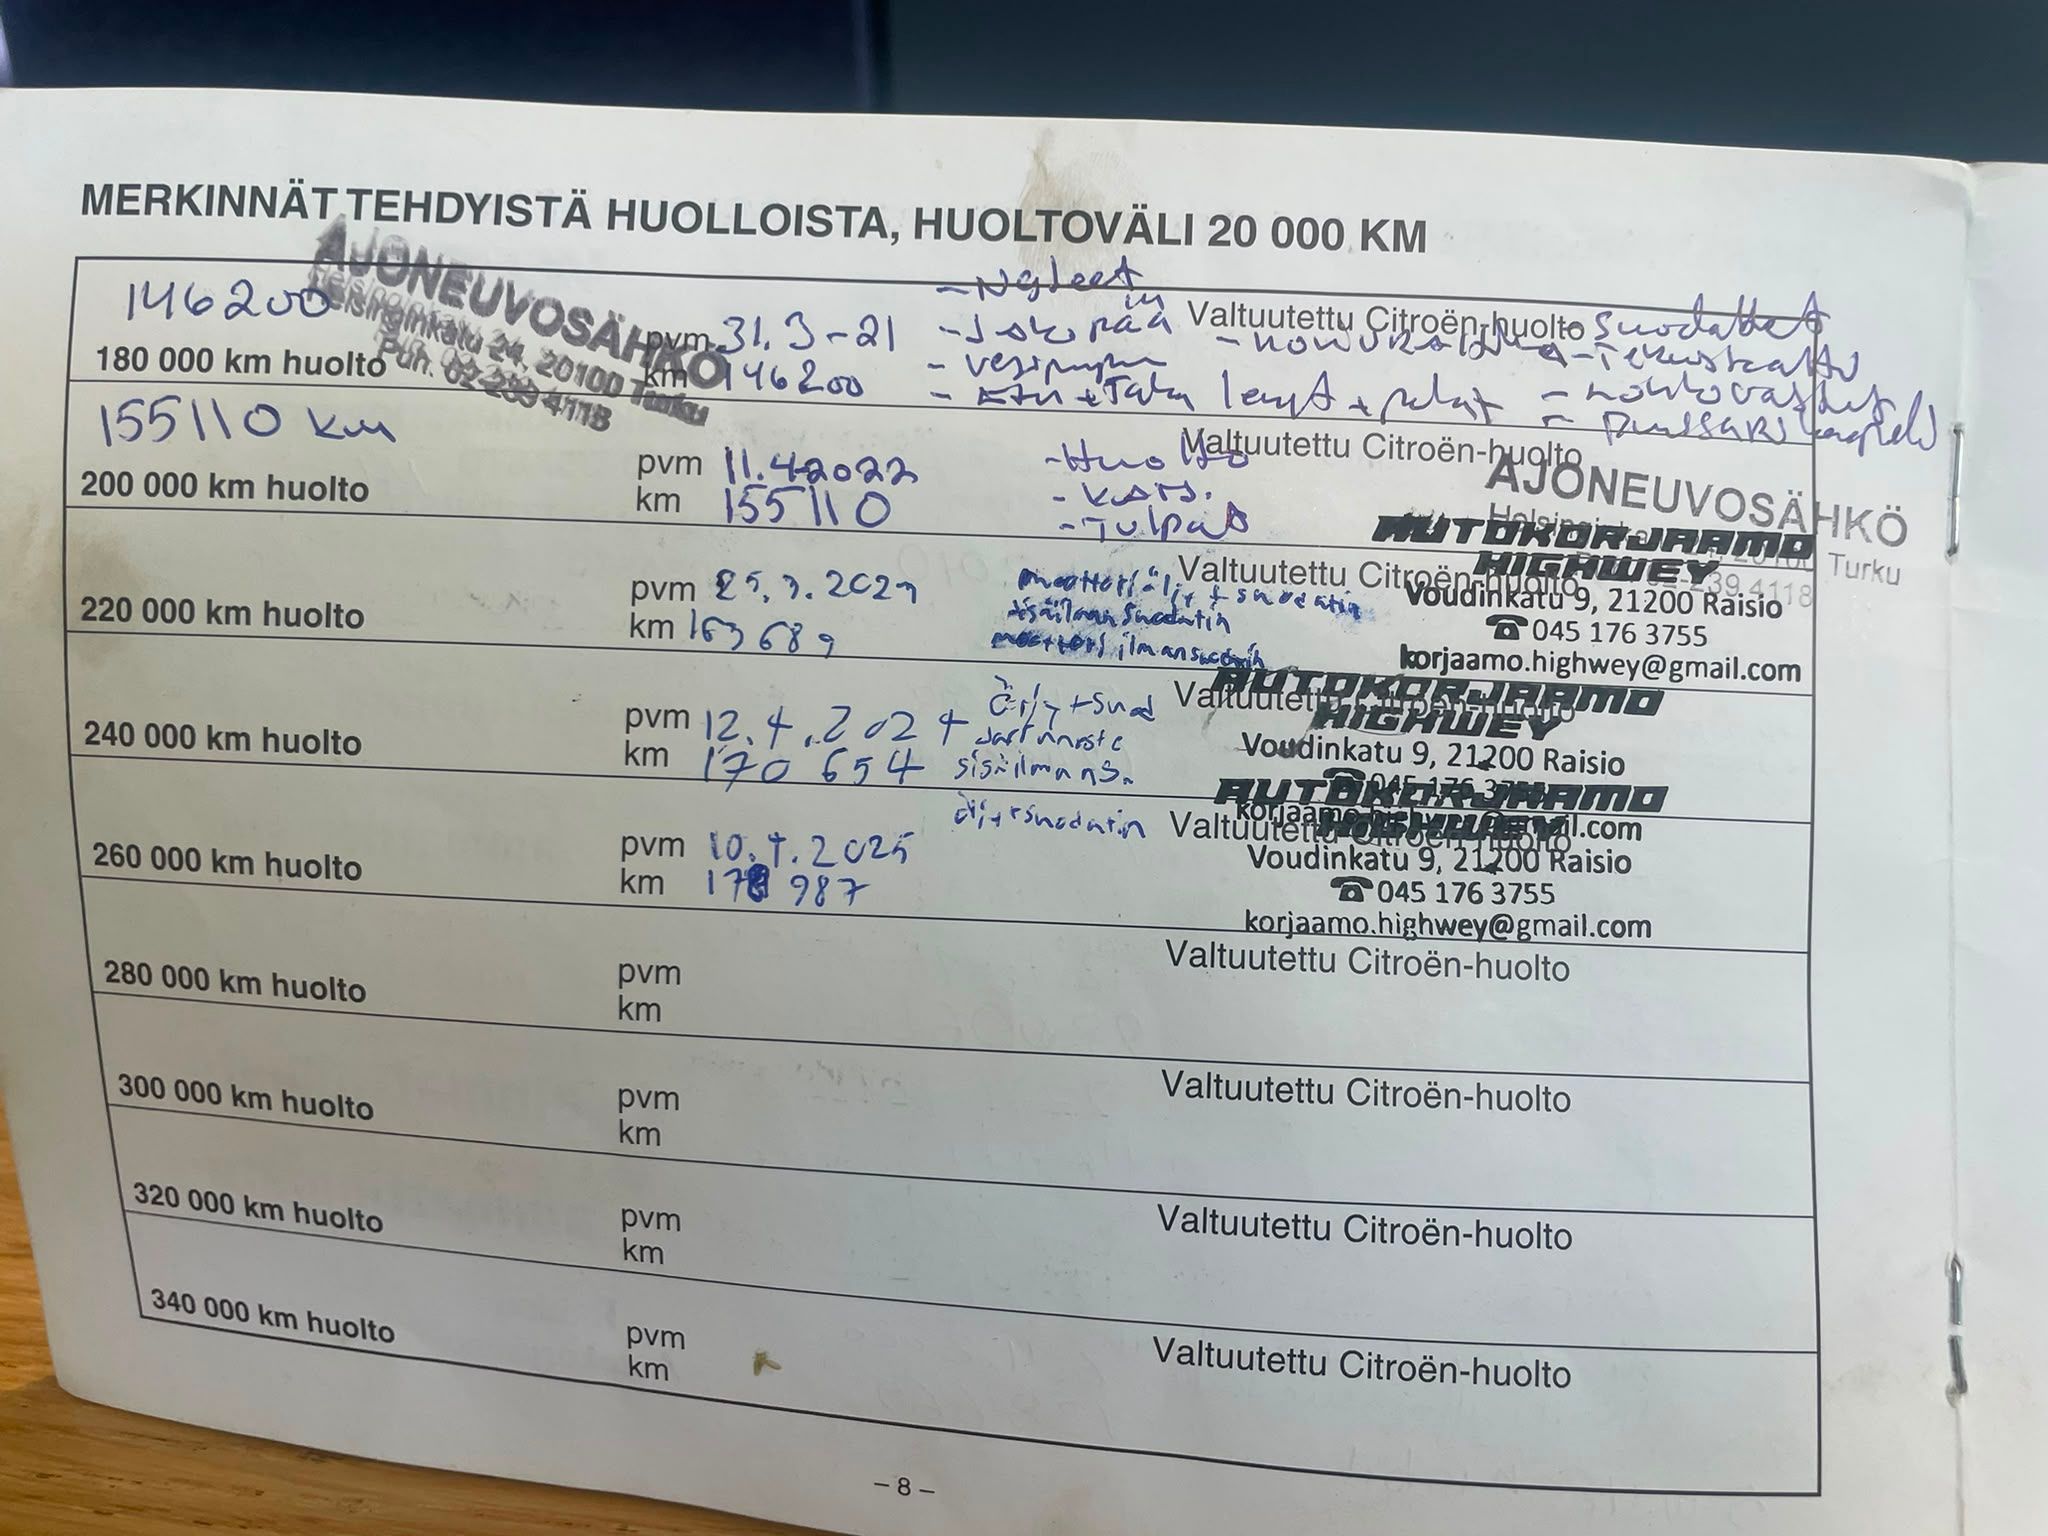 MERKINNÄT TEHDYISTÄ HUOLLOISTA, HUOLTOVÄLI 20 000 KM
146200
AJONEUVOSÄHKÖ
Helsinginkatu 24, 20100 Turku
Puh. 02-239 4118
180 000 km huolto
pvm 31.3-21
km 146200
- Jakopään
- vesipumpu
- Etu + Taka levyt + palat
Valtuutettu Citroën-huolto
- Suodattet
155110 km
200 000 km huolto
pvm 11.4.2022
km 155110
- Huolto
- Kats.
- Tulpat
Valtuutettu Citroën-huolto
AJONEUVOSÄHKÖ
Turku
239 4118
220 000 km huolto
pvm 25.3.2023
km 163689
moottoriöljy + suodatin
sisäilman suodatin
moottori ilmansuodatin
Valtuutettu Citroën-huolto
AUTOKORJAAMO
HIGHWEY
Voudinkatu 9, 21200 Raisio
☎ 045 176 3755
korjaamo.highwey@gmail.com
240 000 km huolto
pvm 12.4.2024
km 170 654
Öljy + suod
Jarruneste
sisäilmans.
Valtuutettu Citroën-huolto
AUTOKORJAAMO
HIGHWEY
Voudinkatu 9, 21200 Raisio
☎ 045 176 3755
korjaamo.highwey@gmail.com
260 000 km huolto
pvm 10.4.2025
km 178 987
öljy + suodatin
Valtuutettu Citroën-huolto
AUTOKORJAAMO
HIGHWEY
Voudinkatu 9, 21200 Raisio
☎ 045 176 3755
korjaamo.highwey@gmail.com
280 000 km huolto
pvm
km
Valtuutettu Citroën-huolto
300 000 km huolto
pvm
km
Valtuutettu Citroën-huolto
320 000 km huolto
pvm
km
Valtuutettu Citroën-huolto
340 000 km huolto
pvm
km
Valtuutettu Citroën-huolto
– 8 –